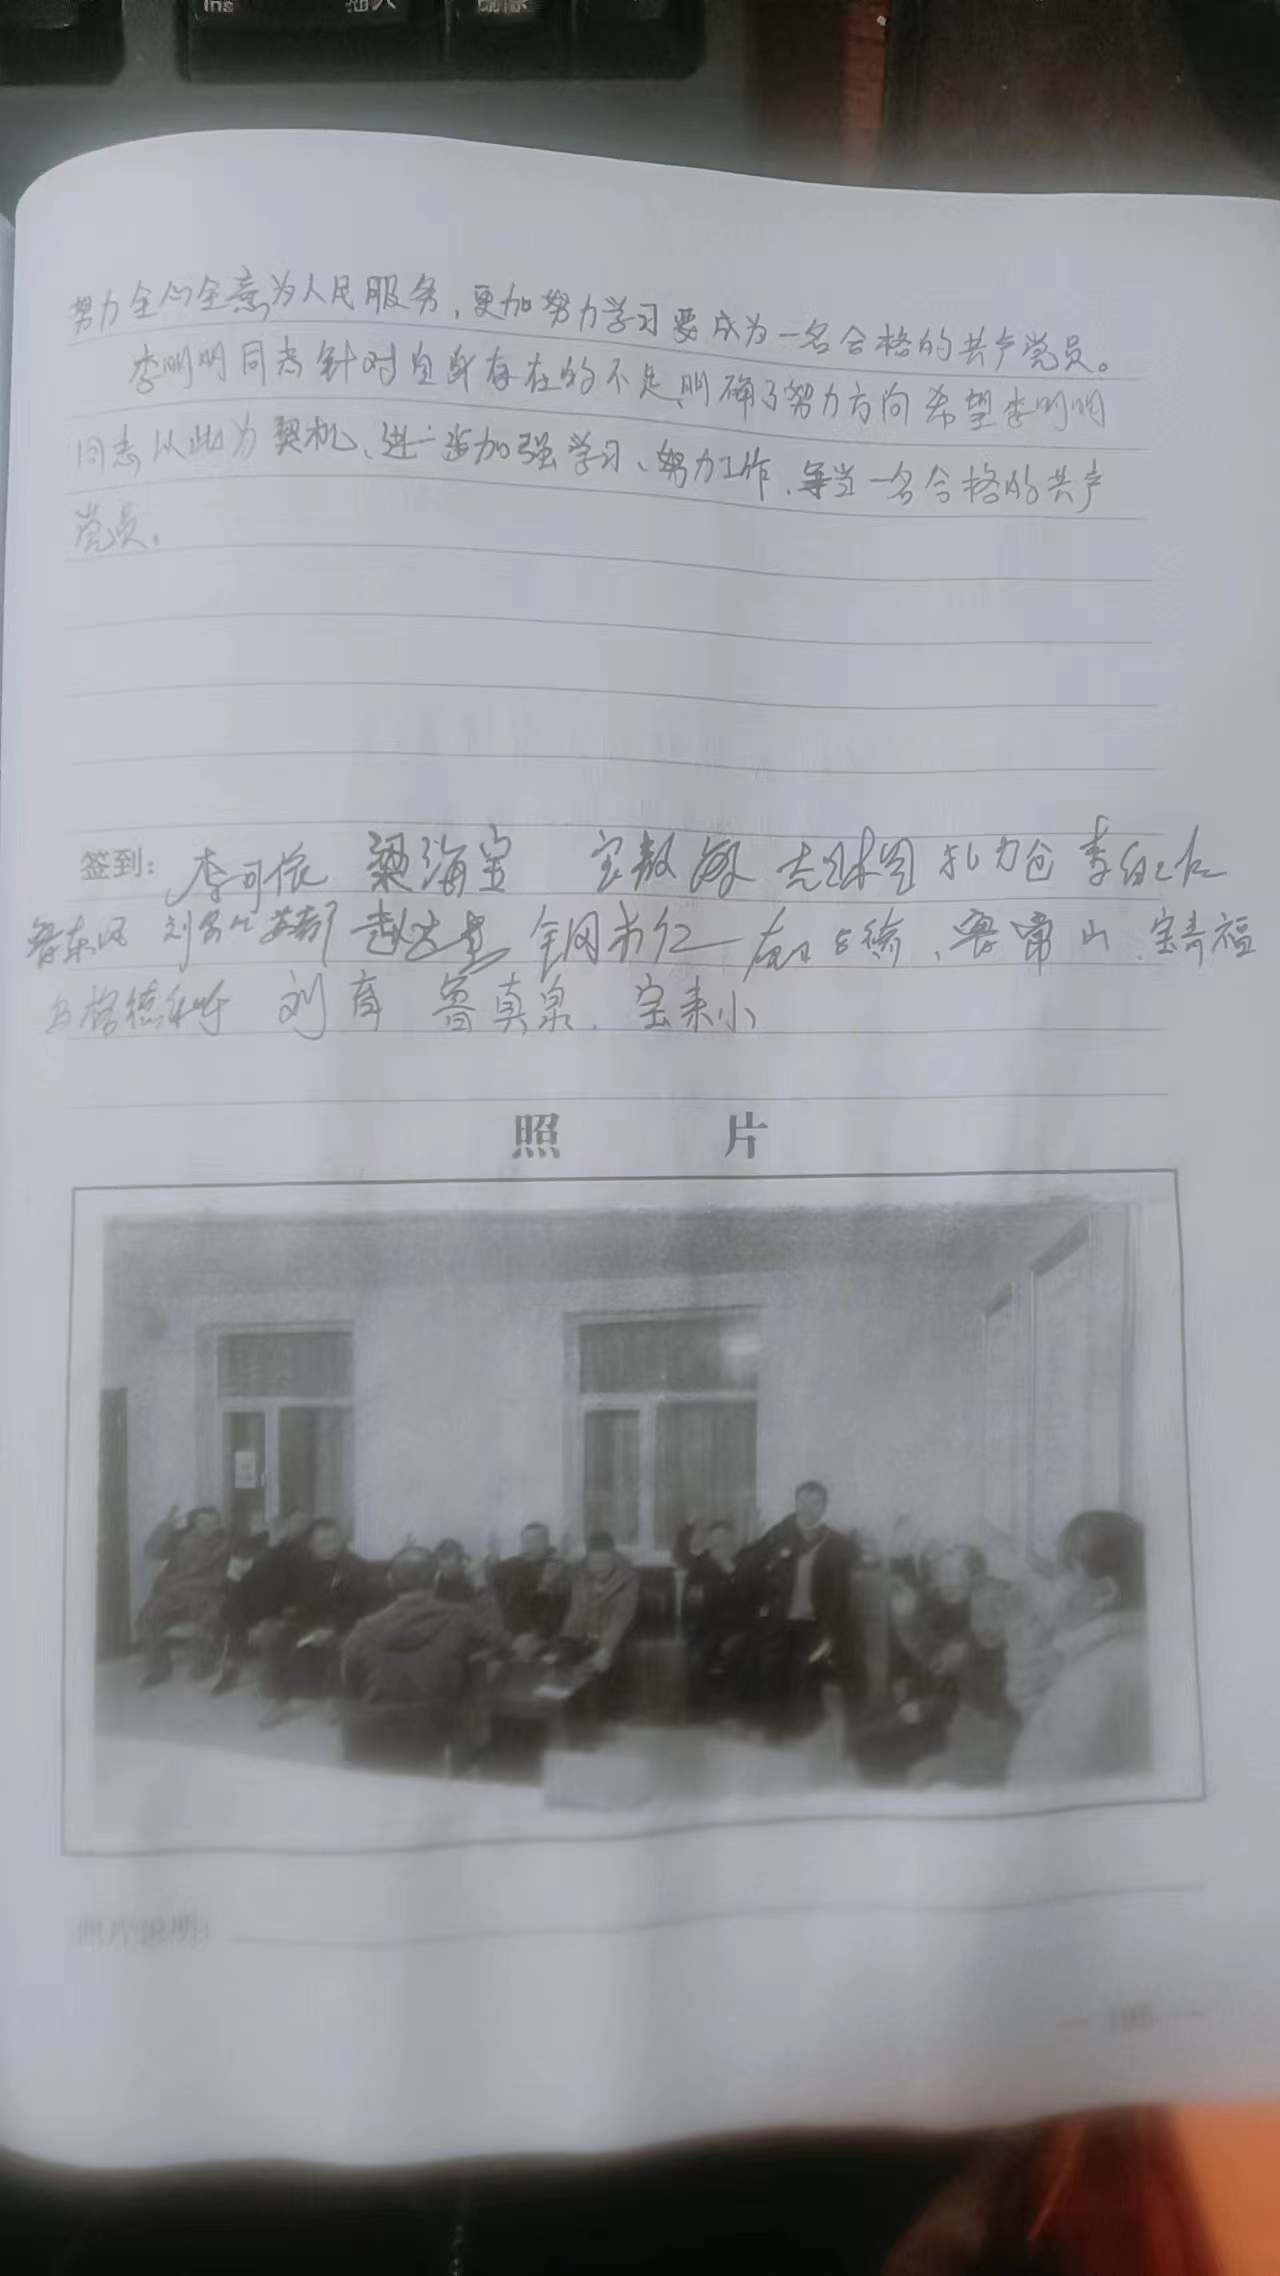 Ins 插入 删除
努力全心全意为人民服务,更加努力学习要成为一名合格的共产党员。
李明明同志针对自身存在的不足,明确了努力方向希望李明明
同志从此为契机、进一步加强学习、努力工作、争当一名合格的共产
党员。
签到: 李可依 梁海宝 宝敖敏 扎力仓
刘 钢 仁 常山 宝青福
乌格德 刘育 鲁真泉、宝来小
照 片
照片说明: